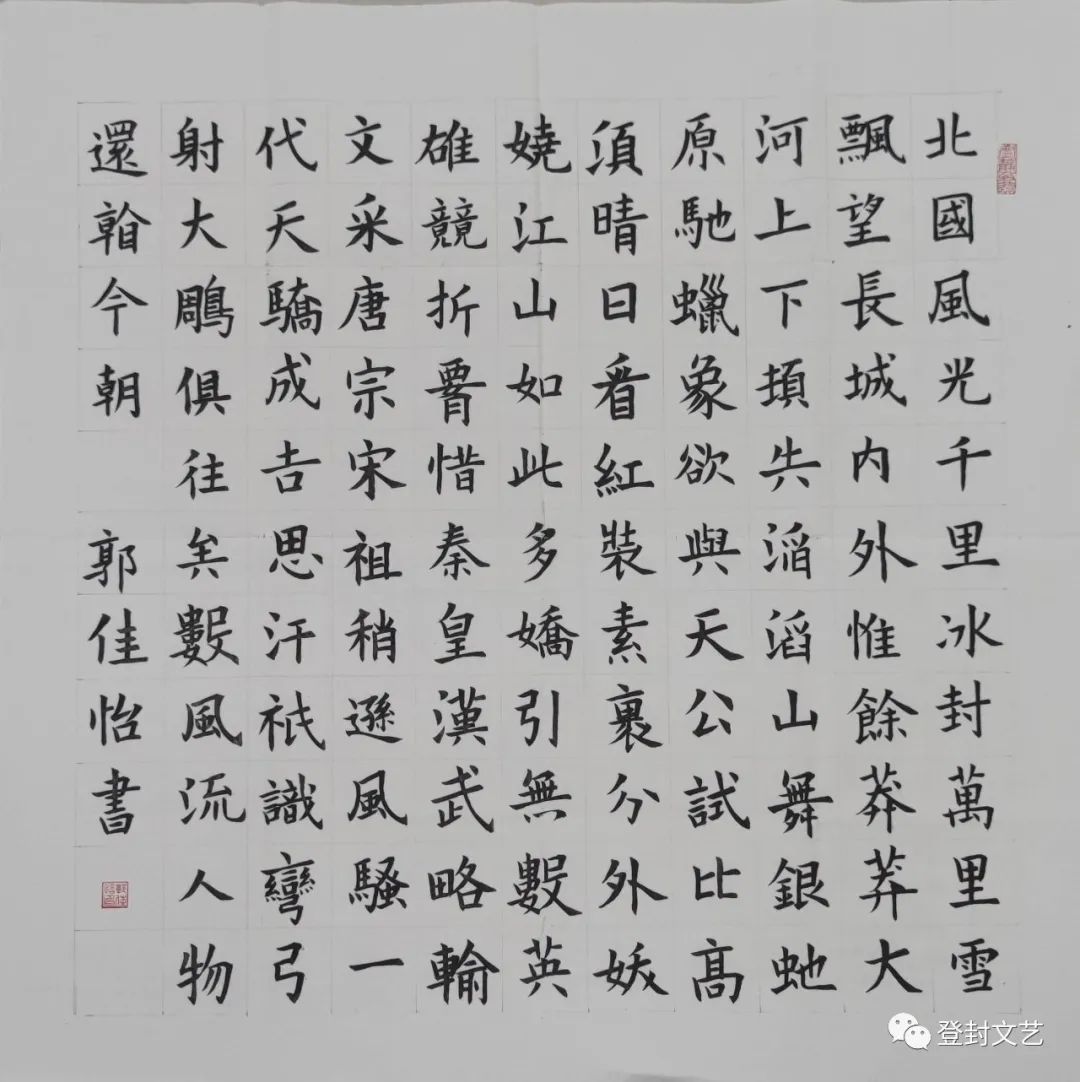 北國風光千里冰封萬里雪
飄望長城内外惟餘莽莽大
河上下頓失滔滔山舞銀虵
原馳蠟象欲與天公試比髙
湏晴日看紅裝素裹分外妖
嬈江山如此多嬌引無數英
雄競折腰惜秦皇漢武略輸
文采唐宗宋祖稍遜風騷一
代天驕成吉思汗祇識彎弓
射大鵰俱往矣數風流人物
還看今朝
郭佳怡書
登封文艺